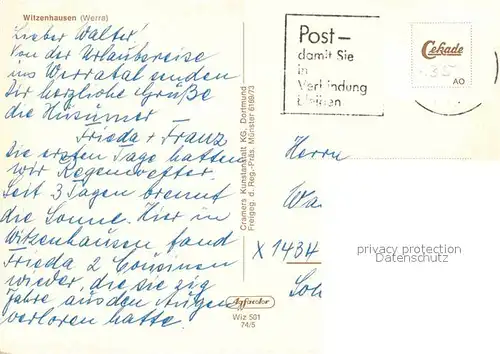 Witzenhausen (Werra)
Lieber Walter!
Von der Urlaubsreise
ins Werratal senden
Dir herzliche Grüße
die Husumer
Frieda + Franz
Die ersten Tage hatten
wir Regenwetter.
Seit 3 Tagen brennt
die Sonne. Hier in
Witzenhausen fand
Frieda 2 Cousinen
wieder, die sie zig
Jahre aus den Augen
verloren hatte.
Cramers Kunstanstalt KG, Dortmund
Freigeg. d. Reg.-Präs. Münster 618/73
Wiz 581
74/5
Post–
damit Sie
in
Verbindung
bleiben
Cekade
AO
Herrn
Wa
X 1434
privacy protection
Datenschutz